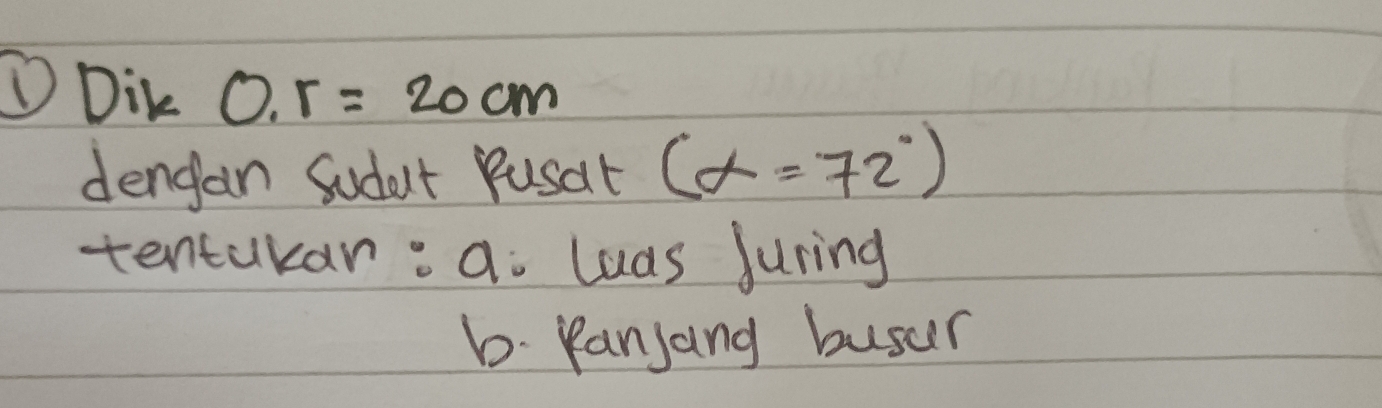 ① Dik O. r = 20 cm
dengan sudut Pusat (α = 72°)
tentukan : a. Luas Juring
b. Panjang busur